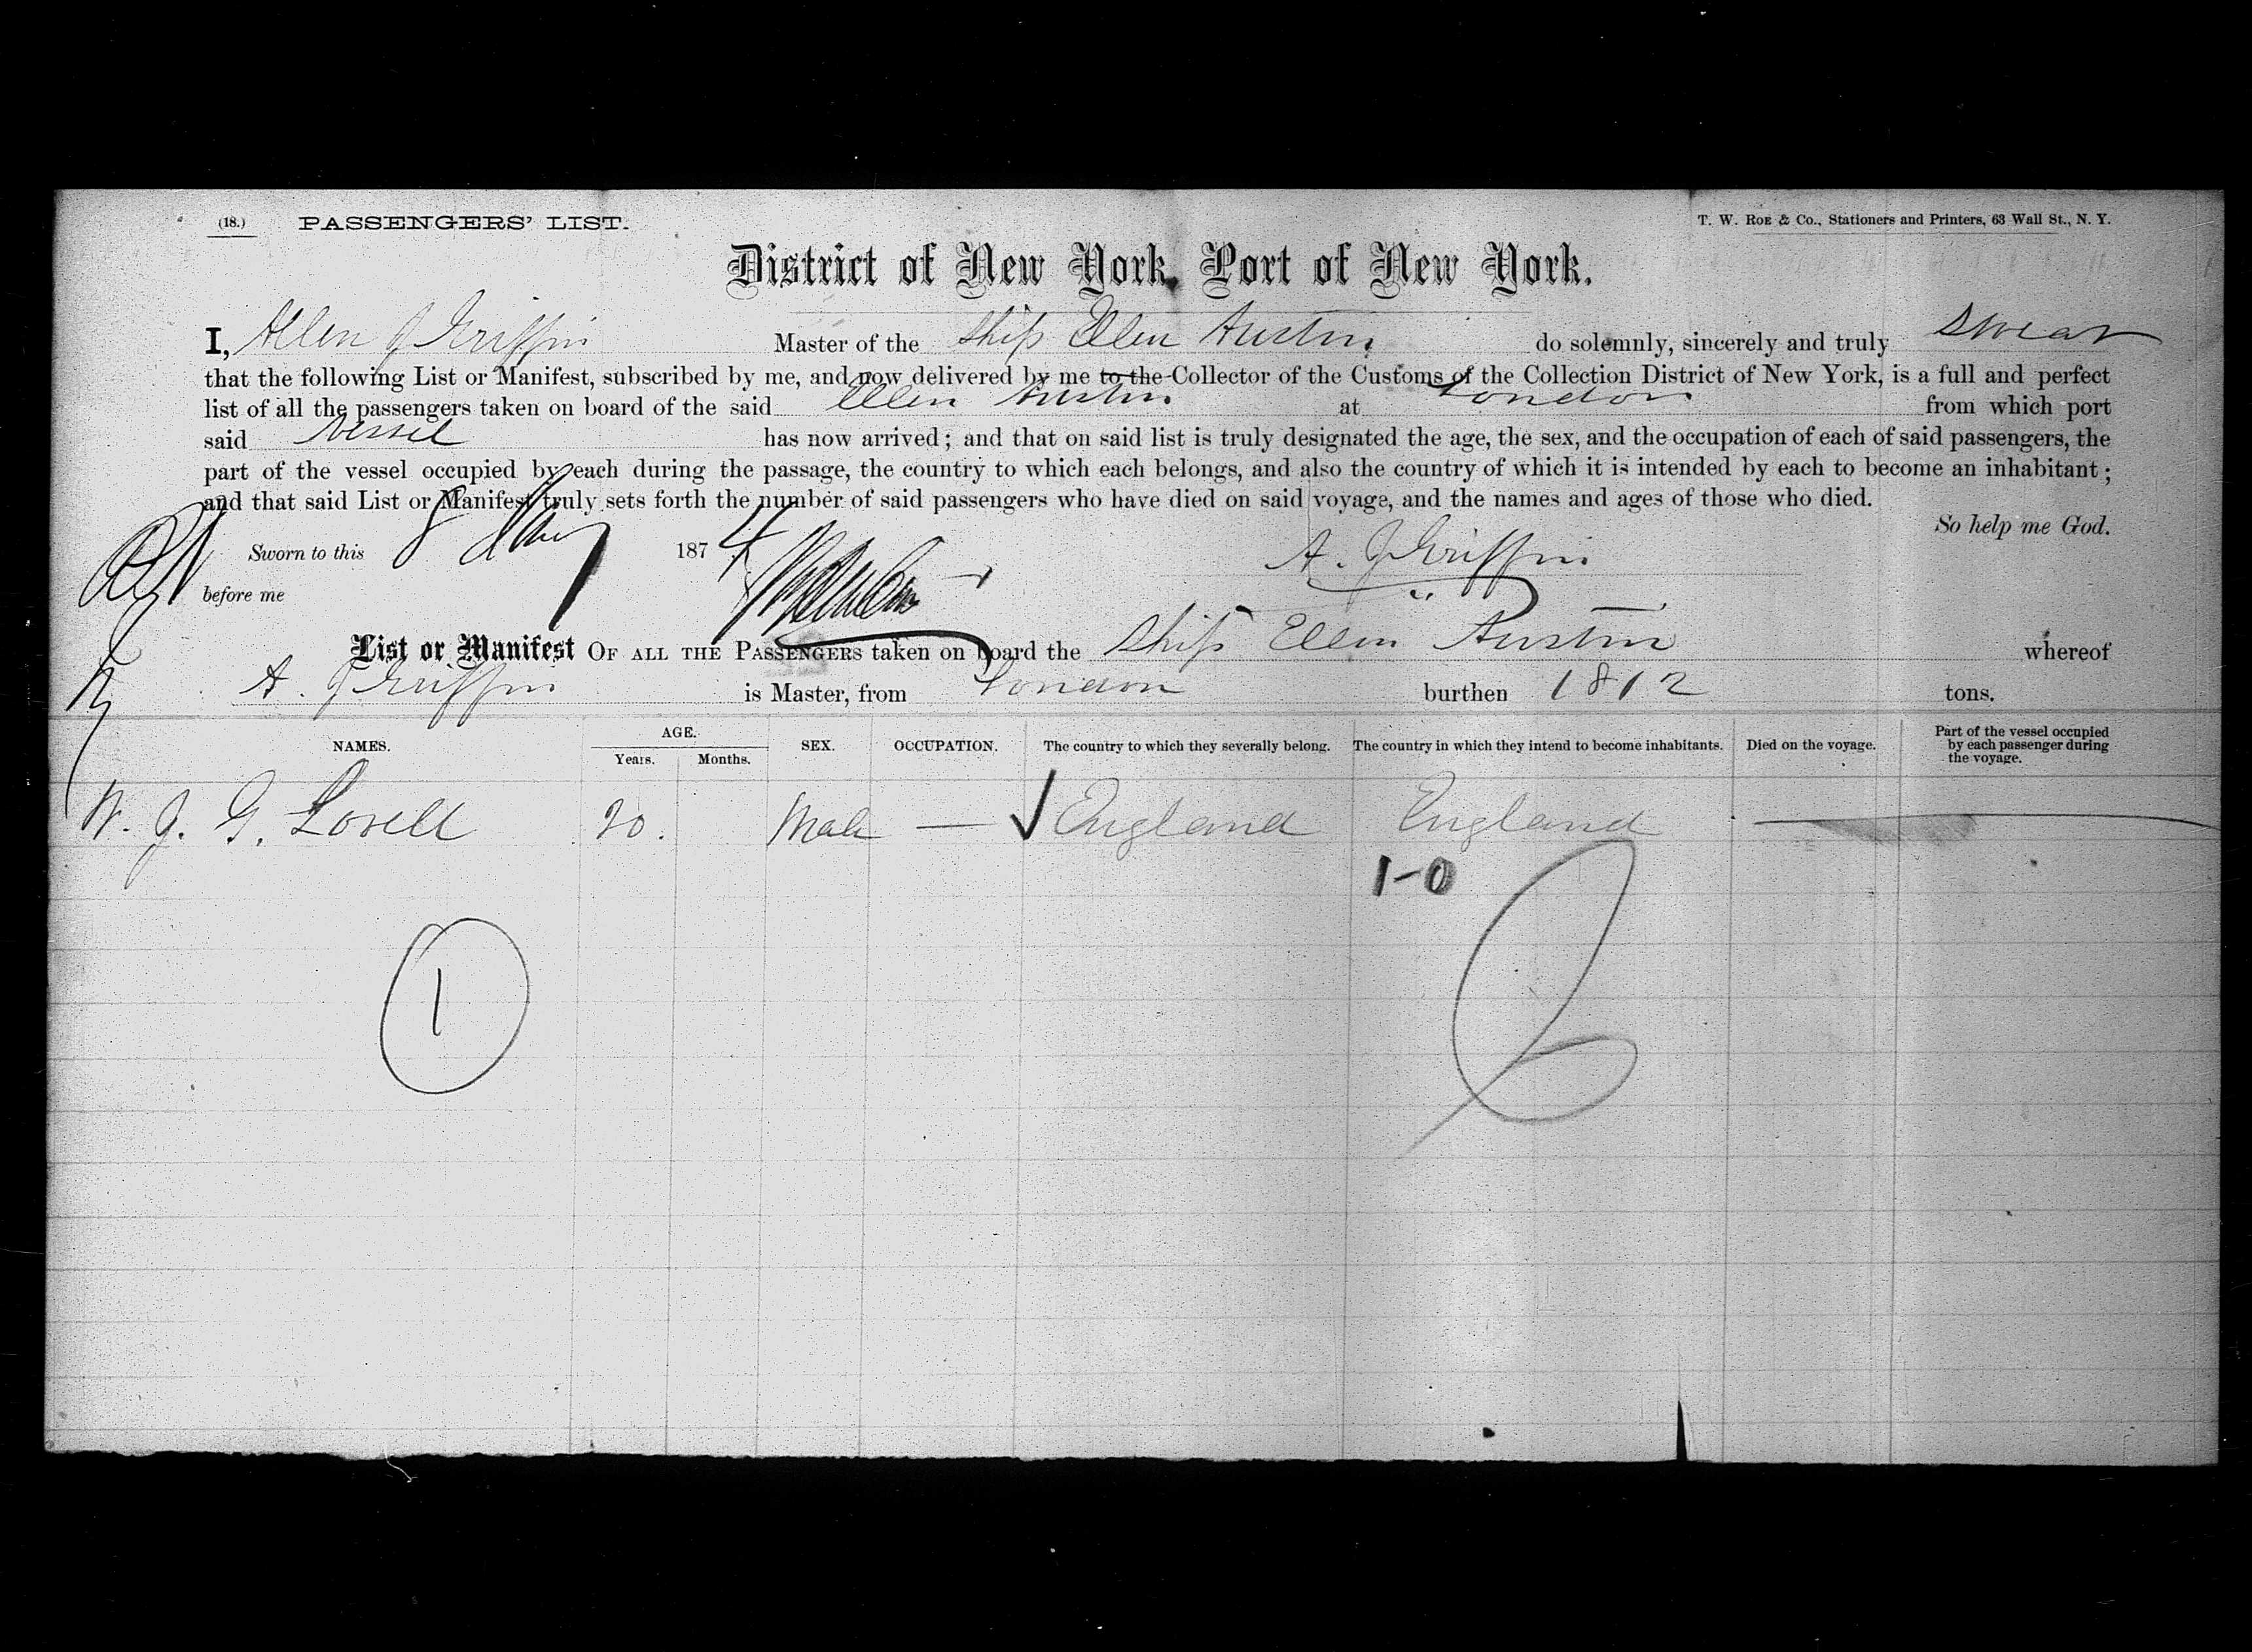 (18.) PASSENGERS' LIST. T. W. ROE & Co., Stationers and Printers, 63 Wall St., N. Y.
District of New York, Port of New York.
I, Allen J Griffin Master of the Ship Ellen Austin do solemnly, sincerely and truly swear
that the following List or Manifest, subscribed by me, and now delivered by me to the Collector of the Customs of the Collection District of New York, is a full and perfect
list of all the passengers taken on board of the said Ellen Austin at London from which port
said Vessel has now arrived; and that on said list is truly designated the age, the sex, and the occupation of each of said passengers, the
part of the vessel occupied by each during the passage, the country to which each belongs, and also the country of which it is intended by each to become an inhabitant;
and that said List or Manifest truly sets forth the number of said passengers who have died on said voyage, and the names and ages of those who died.
So help me God.
Sworn to this 8 May 1874 A. J Griffin
before me
List or Manifest OF ALL THE PASSENGERS taken on board the Ship Ellen Austin whereof
A. J Griffin is Master, from London burthen 1812 tons.
NAMES. AGE. Years. Months. SEX. OCCUPATION. The country to which they severally belong. The country in which they intend to become inhabitants. Died on the voyage. Part of the vessel occupied by each passenger during the voyage.
W. J. G. Lovell 20. Male — ✓ England England —
1-0
1